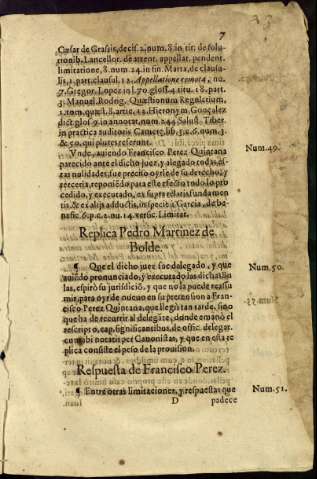 7
Cæsar de Grassis, decis. 2. num. 8. in tit. de solu-
tionib. Lancellot. de attent. appellat. pendent.
limitatione, 8. num. 24. in fin. Marta, de clausu-
lis, 1. part. clausul. 12. Appellatione remota, nu.
7. Gregor. Lopez in l. 70. gloss. 4. titu. 18. part.
3. Manuel Rodrig. Quæstionum Regularium,
1. tom. quæst. 18. artic. 12. Hieronym. Gonçalez
dict. glos. 9. in annotat. num. 244. Salust. Tiber.
in practica auditoris Cameræ, lib. 3. c. 6. num. 3.
& 50. qui plures referunt.
Vnde, auiendo Francisco Perez Quintana
parecido ante el dicho juez, y alegado todas es-
tas nulidades, fue preciso oyrle de su derecho, y
cado, y executado, ex supra relatis fundamen-
tis & ex alijs adductis, inspecie à Garcia, de be-
nefic. 6. p. c. 2. nu. 14. versic. Limitat.
Num. 49.
Replica Pedro Martinez de
Bolde.
¶ Que el dicho juez fue delegado, y que
auiendo pronunciado, y executado las dichas Bu-
las, espirò su jurisdició, y que no la puede reassu-
mir, para oyr de nueuo en su pretension a Fran-
cisco Perez Quintana, que llegò tan tarde, sino
que ha de recurrir al delegáte, donde emanò el
rescripto, cap. significantibus, de offic. delegat.
cum ibi notatis per Canonistas, y que en esta re-
plica consiste el peso de la prouision.
Num. 50.
Respuesta de Francisco Perez.
¶ Entre otras limitaciones, y respuestas que
Num. 51.
D
padece